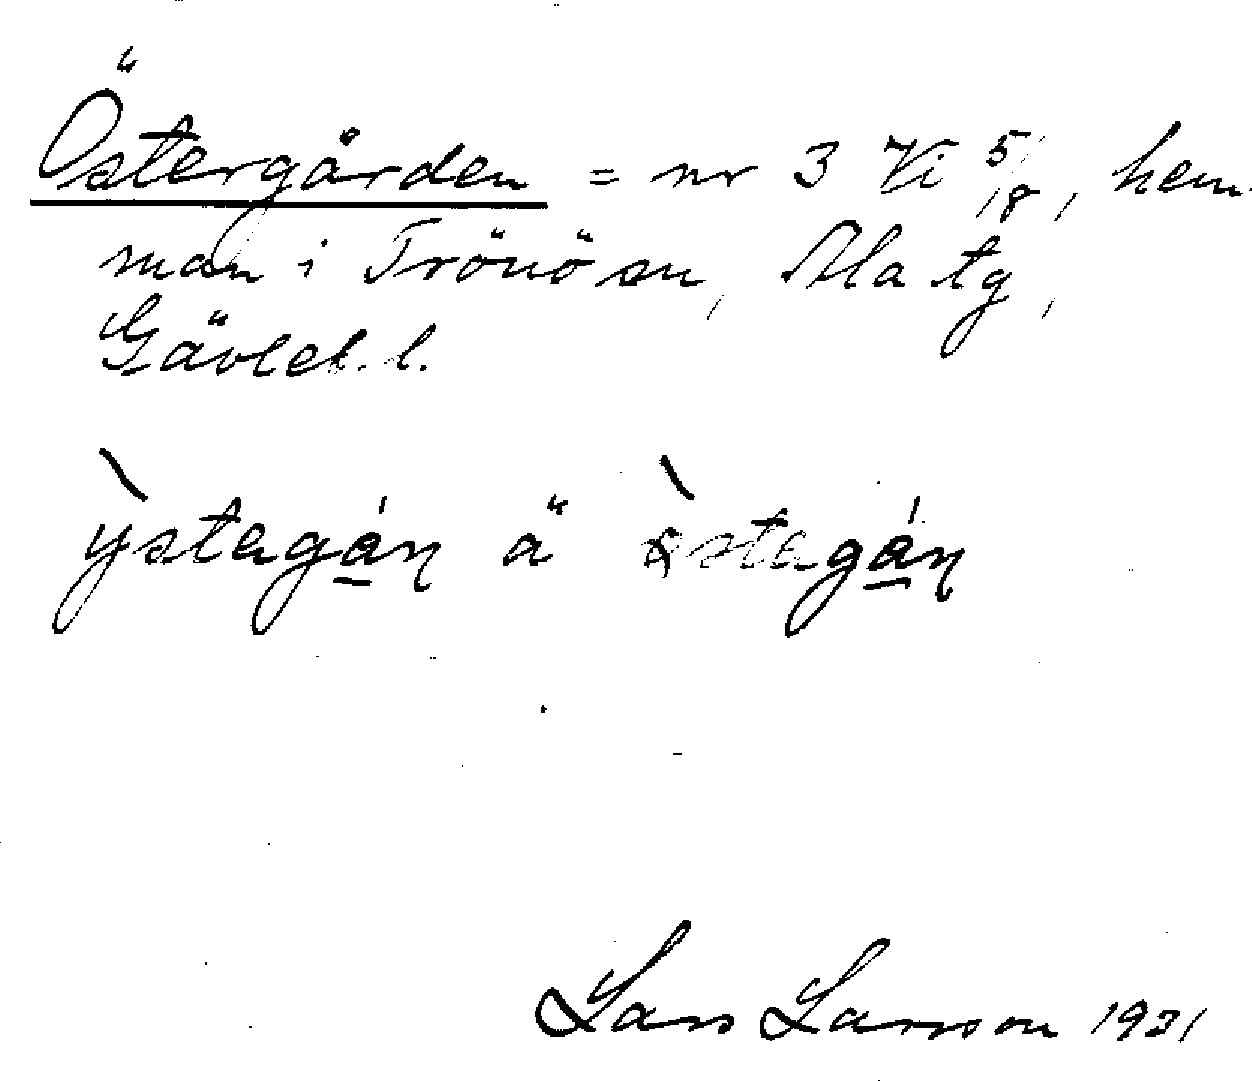 Östergården = nr 3 Vi 5/8, hem-
man i Trönö sn, Ala tg,
Gävleb. l.
ỳstagán ä
Lars Larsson 1931